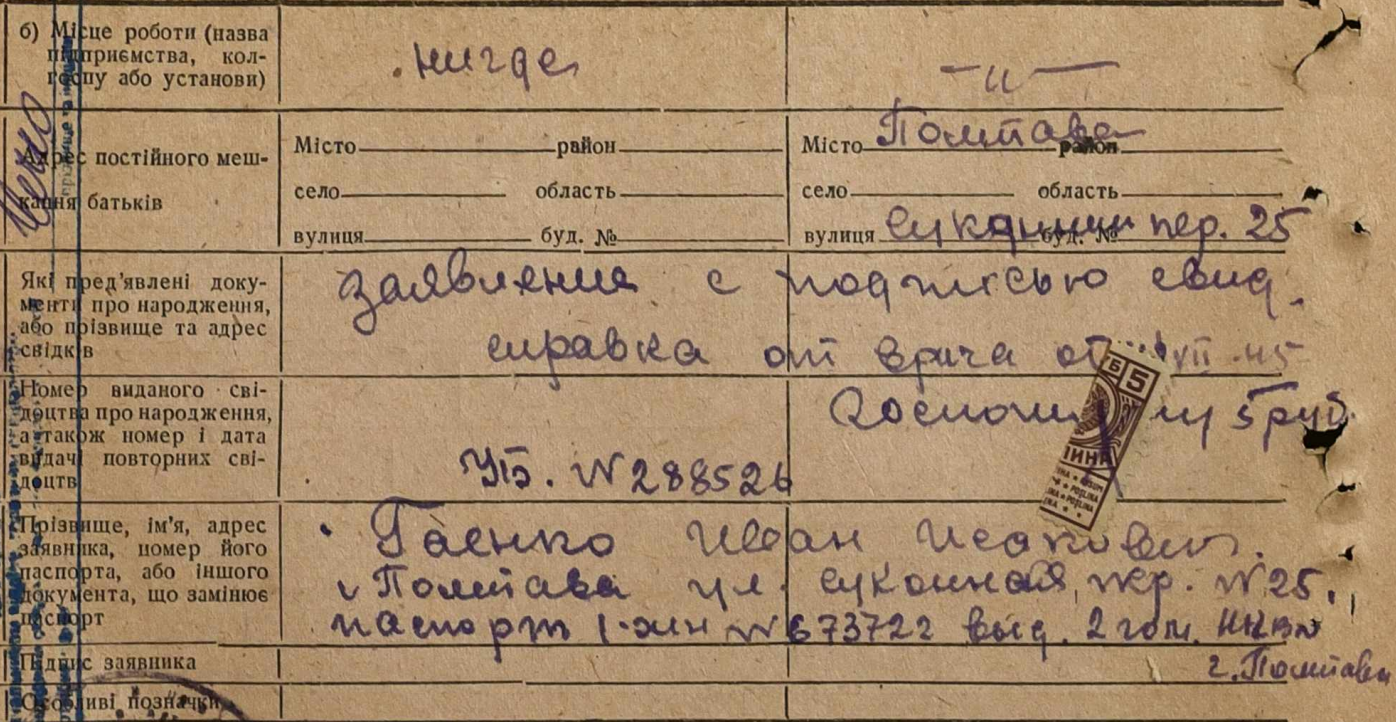 б) Місце роботи (назва
підприємства, кол-
госпу або установи)
нигде
— " —
Адрес постійного меш-
кання батьків
Місто район
село область
вулиця буд. №
Місто Полтава район
село область
вулиця Суконный буд. № пер. 25
Які пред'явлені доку-
менті про народження,
або прізвище та адрес
свідків
заявление с подписью свид.
справка от врача от VII 45
Номер виданого сві-
доцтва про народження,
а також номер і дата
видачі повторних сві-
доцтв
Госпошл 5 руб.
УБ. № 288526
Б 5
Прізвище, ім'я, адрес
заявника, номер його
паспорта, або іншого
документа, що замінює
паспорт
Гаенко Иван Исакович.
г Полтава ул. Суконная, пер. № 25,
паспорт № 673722 выд. 2 гом. НКВД
г. Полтавы
Підпис заявника
Особливі позначки